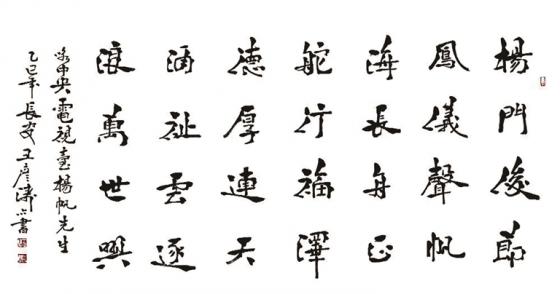 楊門俊節
鳳儀聲帆
海長舟正
舵行福澤
德厚連天
涌祉雲逐
浪萬世興
咏中央電視臺楊帆先生
乙巳年長安王彥濤書